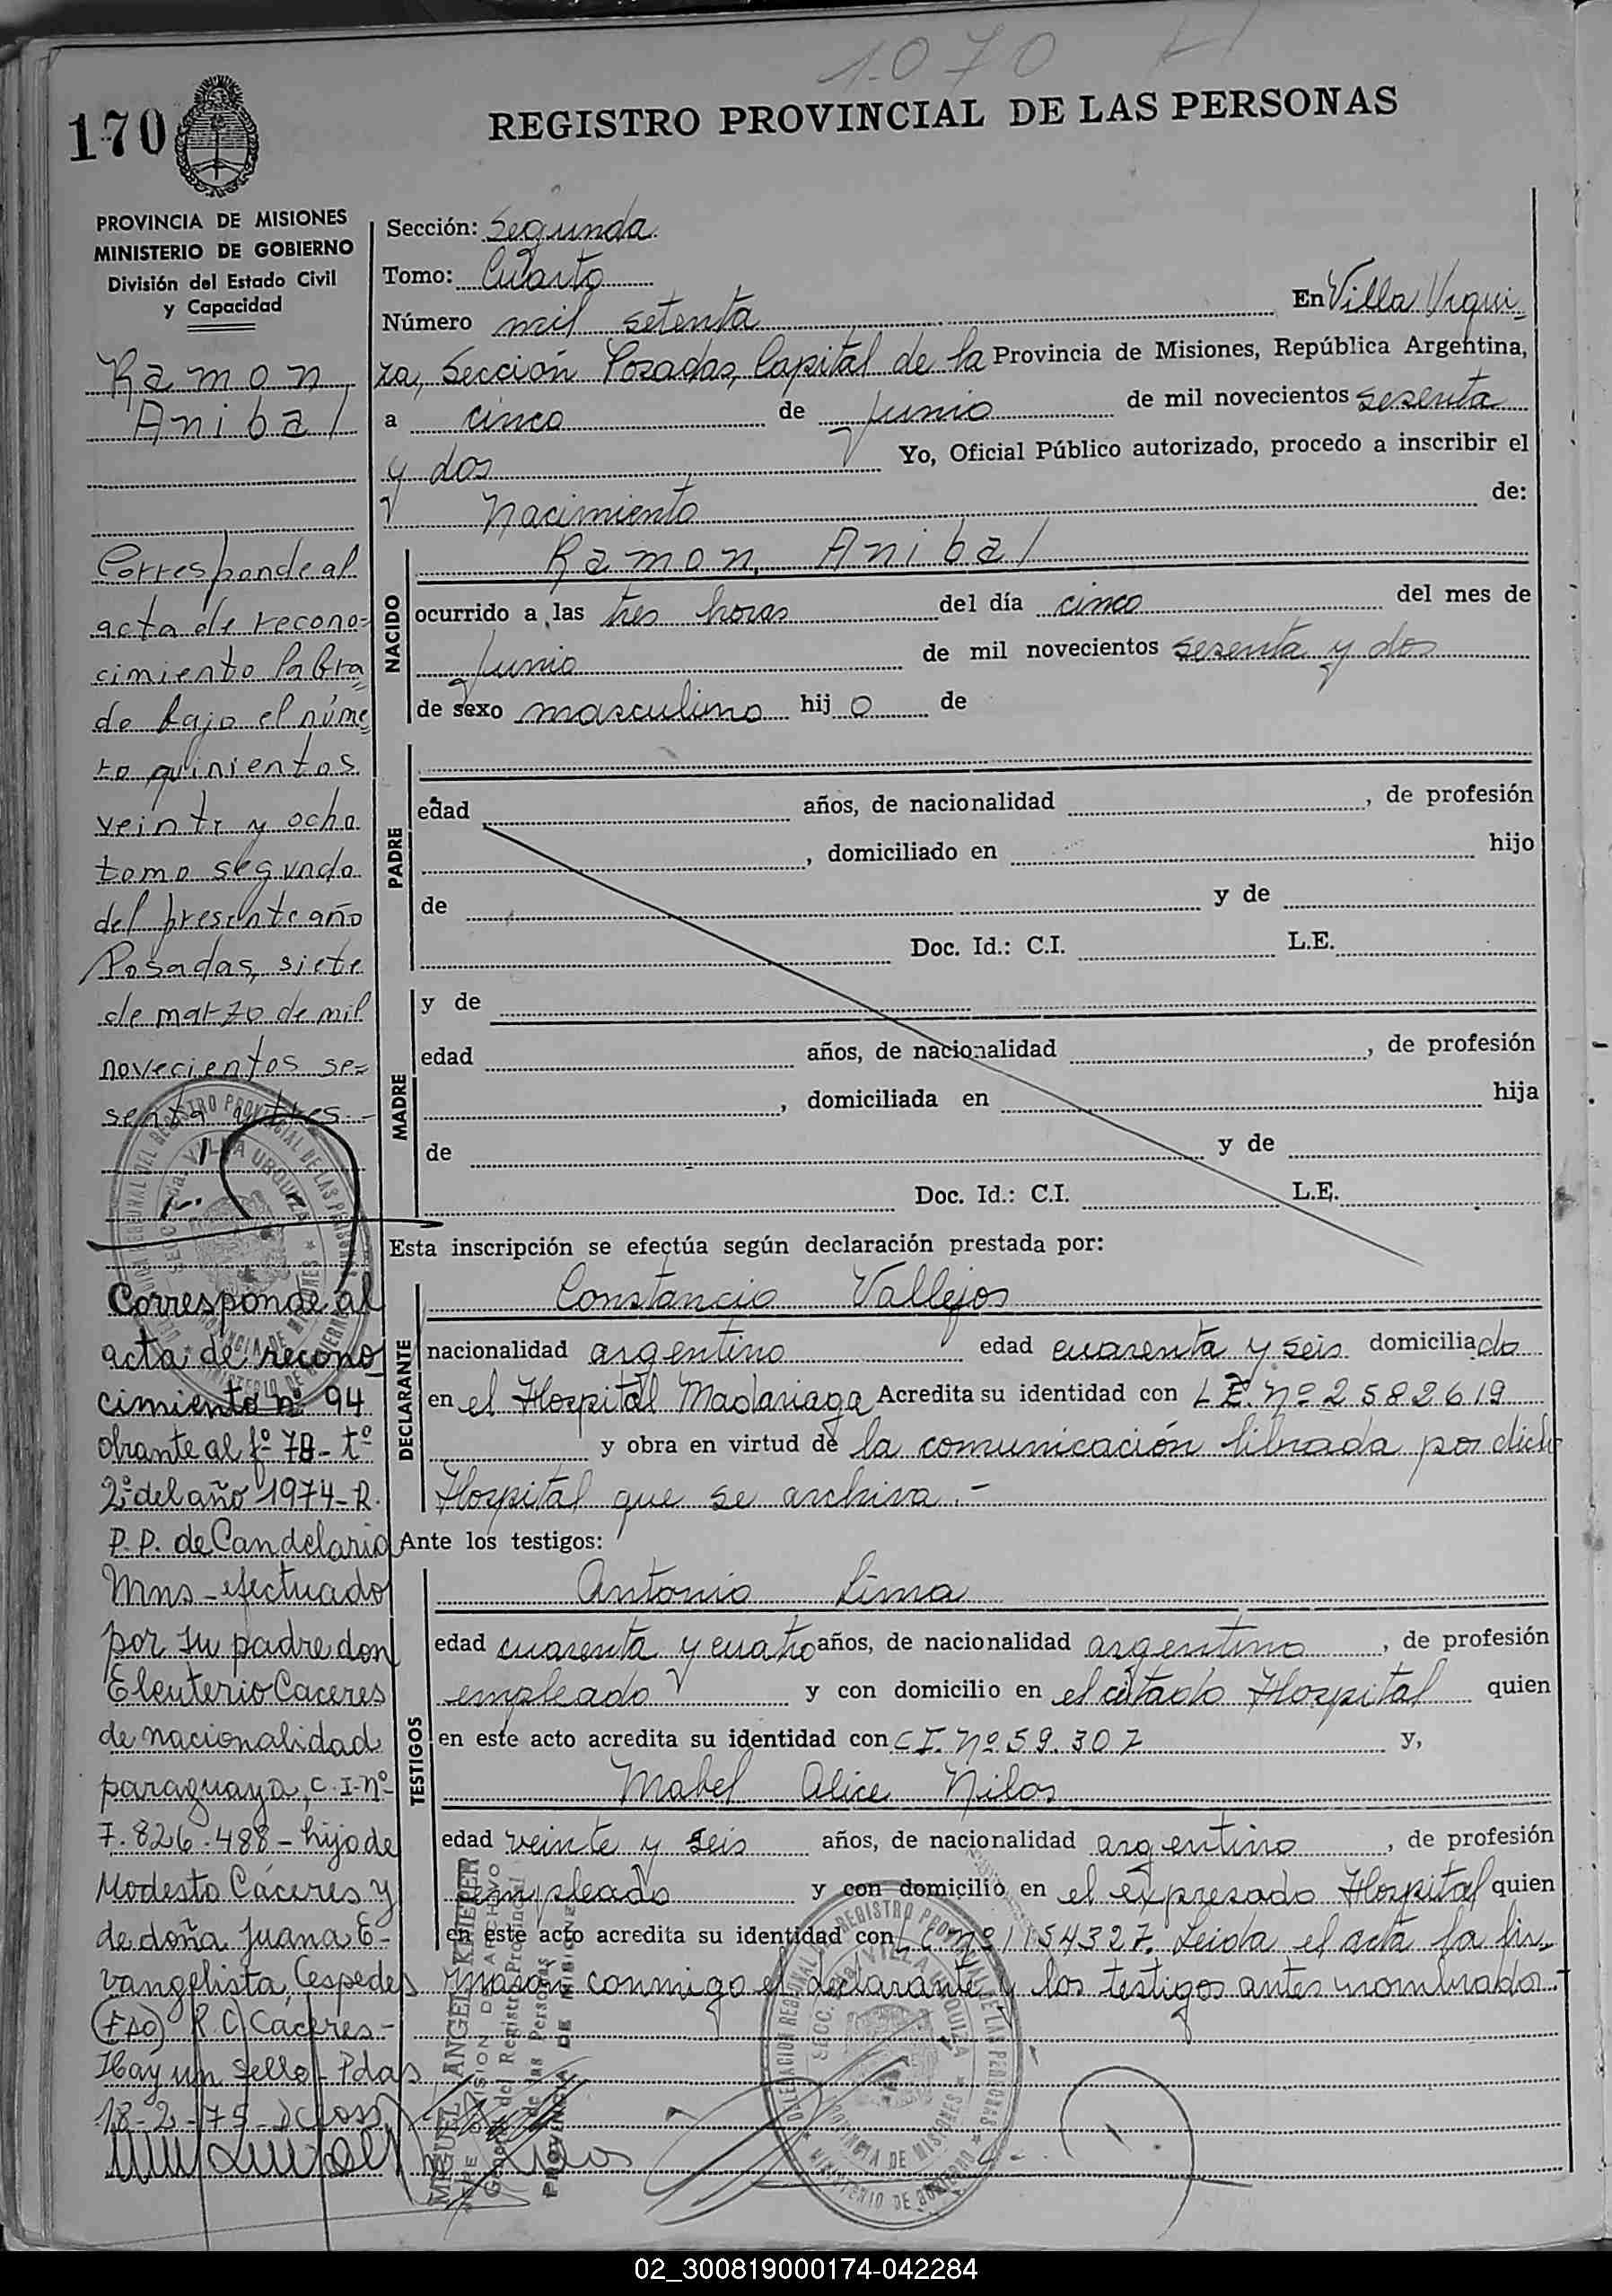 1070
170
REGISTRO PROVINCIAL DE LAS PERSONAS
PROVINCIA DE MISIONES
MINISTERIO DE GOBIERNO
División del Estado Civil
y Capacidad
Ramon
Anibal
Corresponde al
acta de recono=
cimiento labra=
do bajo el núme=
ro quinientos
veinte y ocho
tomo segundo
del presente año
Posadas, siete
de marzo de mil
novecientos se=
senta y tres.-
Corresponde al
acta de recono
cimiento nº 94
obrante al fº 78- tº
2º del año 1974- R.
P.P. de Candelaria
Mns - efectuado
por su padre don
Eleuterio Caceres
de nacionalidad
paraguaya, C.I-nº
7.826.488 - hijo de
Modesto Cáceres y
de doña Juana E-
vangelista Cespedes
(FdO) R.C. Cáceres-
Hay un sello - Pdas
18-2-75-
Sección: Segunda
Tomo: Cuarto
Número mil setenta En Villa Urqui-
za, Sección Posadas, Capital de la Provincia de Misiones, República Argentina,
a cinco de junio de mil novecientos sesenta
y dos Yo, Oficial Público autorizado, procedo a inscribir el
Nacimiento de:
NACIDO
Ramon Anibal
ocurrido a las tres horas del día cinco del mes de
junio de mil novecientos sesenta y dos
de sexo masculino hijo de
PADRE
edad años, de nacionalidad , de profesión
, domiciliado en hijo
de y de
Doc. Id.: C.I. L.E.
MADRE
y de
edad años, de nacionalidad , de profesión
, domiciliada en hija
de y de
Doc. Id.: C.I. L.E.
Esta inscripción se efectúa según declaración prestada por:
DECLARANTE
Constancio Vallejos
nacionalidad argentino edad cuarenta y seis domiciliado
en el Hospital Madariaga Acredita su identidad con L.E. Nº 2582619
y obra en virtud de la comunicación librada por dicho
Hospital que se archiva.-
Ante los testigos:
TESTIGOS
Antonio Lima
edad cuarenta y cuatro años, de nacionalidad argentino , de profesión
empleado y con domicilio en el citado Hospital quien
en este acto acredita su identidad con C.I. Nº 59.307 y,
Mabel Alice Nilos
edad veinte y seis años, de nacionalidad argentino , de profesión
empleado y con domicilio en el expresado Hospital quien
en este acto acredita su identidad con L.C. nº 1154327. Leida el acta la fir-
man conmigo el declarante y los testigos antes nombrado.-
MIGUEL ANGEL KIEFER
JEFE DIVISION DE ARCHIVO
General del Registro Provincial
de las Personas
PROVINCIA DE MISIONES
DELEGACION REGIONAL DEL REGISTRO PROVINCIAL DE LAS PERSONAS
VILLA URQUIZA
PROVINCIA DE MISIONES
MINISTERIO DE GOBIERNO
02_300819000174-042284